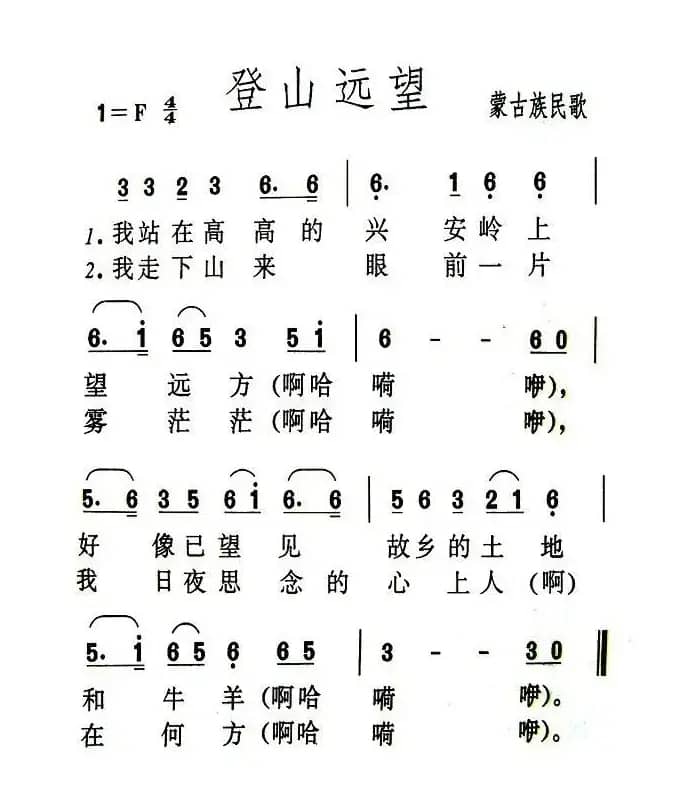 登山远望
1=F 4/4
蒙古族民歌
3 3 2 3 6. 6 | 6. 1 6 6 |
1.我站在高高的兴安岭上
2.我走下山来眼前一片
6. i 6 5 3 5 i | 6 - - 6 0 |
望远方(啊哈嗬咿),
雾茫茫(啊哈嗬咿),
5. 6 3 5 6 i 6. 6 | 5 6 3 2 1 6 |
好像已望见故乡的土地
我日夜思念的心上人(啊)
5. i 6 5 6 6 5 | 3 - - 3 0 ‖
和牛羊(啊哈嗬咿)。
在何方(啊哈嗬咿)。